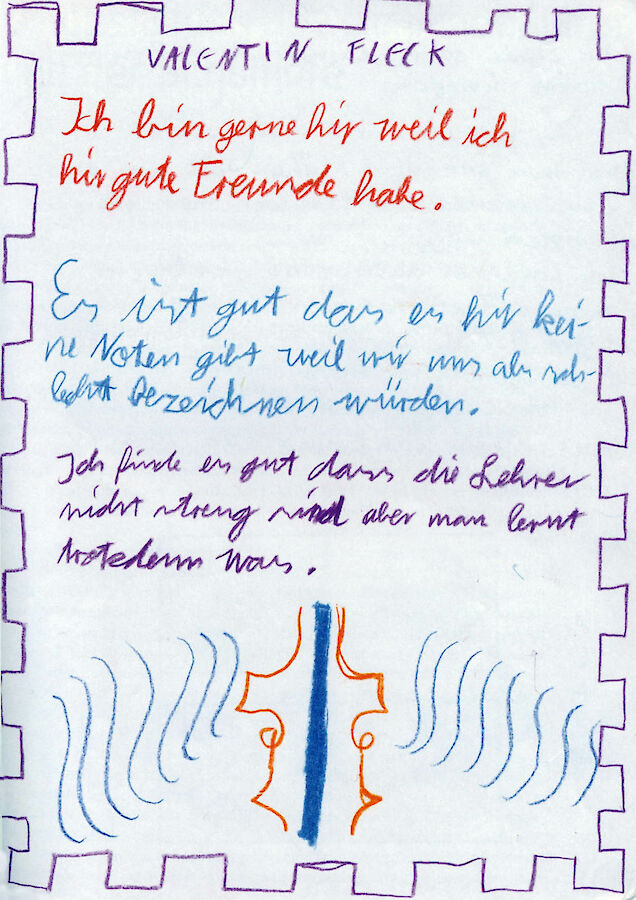 VALENTIN FLECK
Ich bin gerne hir weil ich
hir gute Freunde habe.
Es ist gut das es hir kei-
ne Noten gibt weil wir uns als sch-
lecht bezeichnen würden.
Ich finde es gut dass die Lehrer
nicht streng sind aber man lernt
trotzdem was.